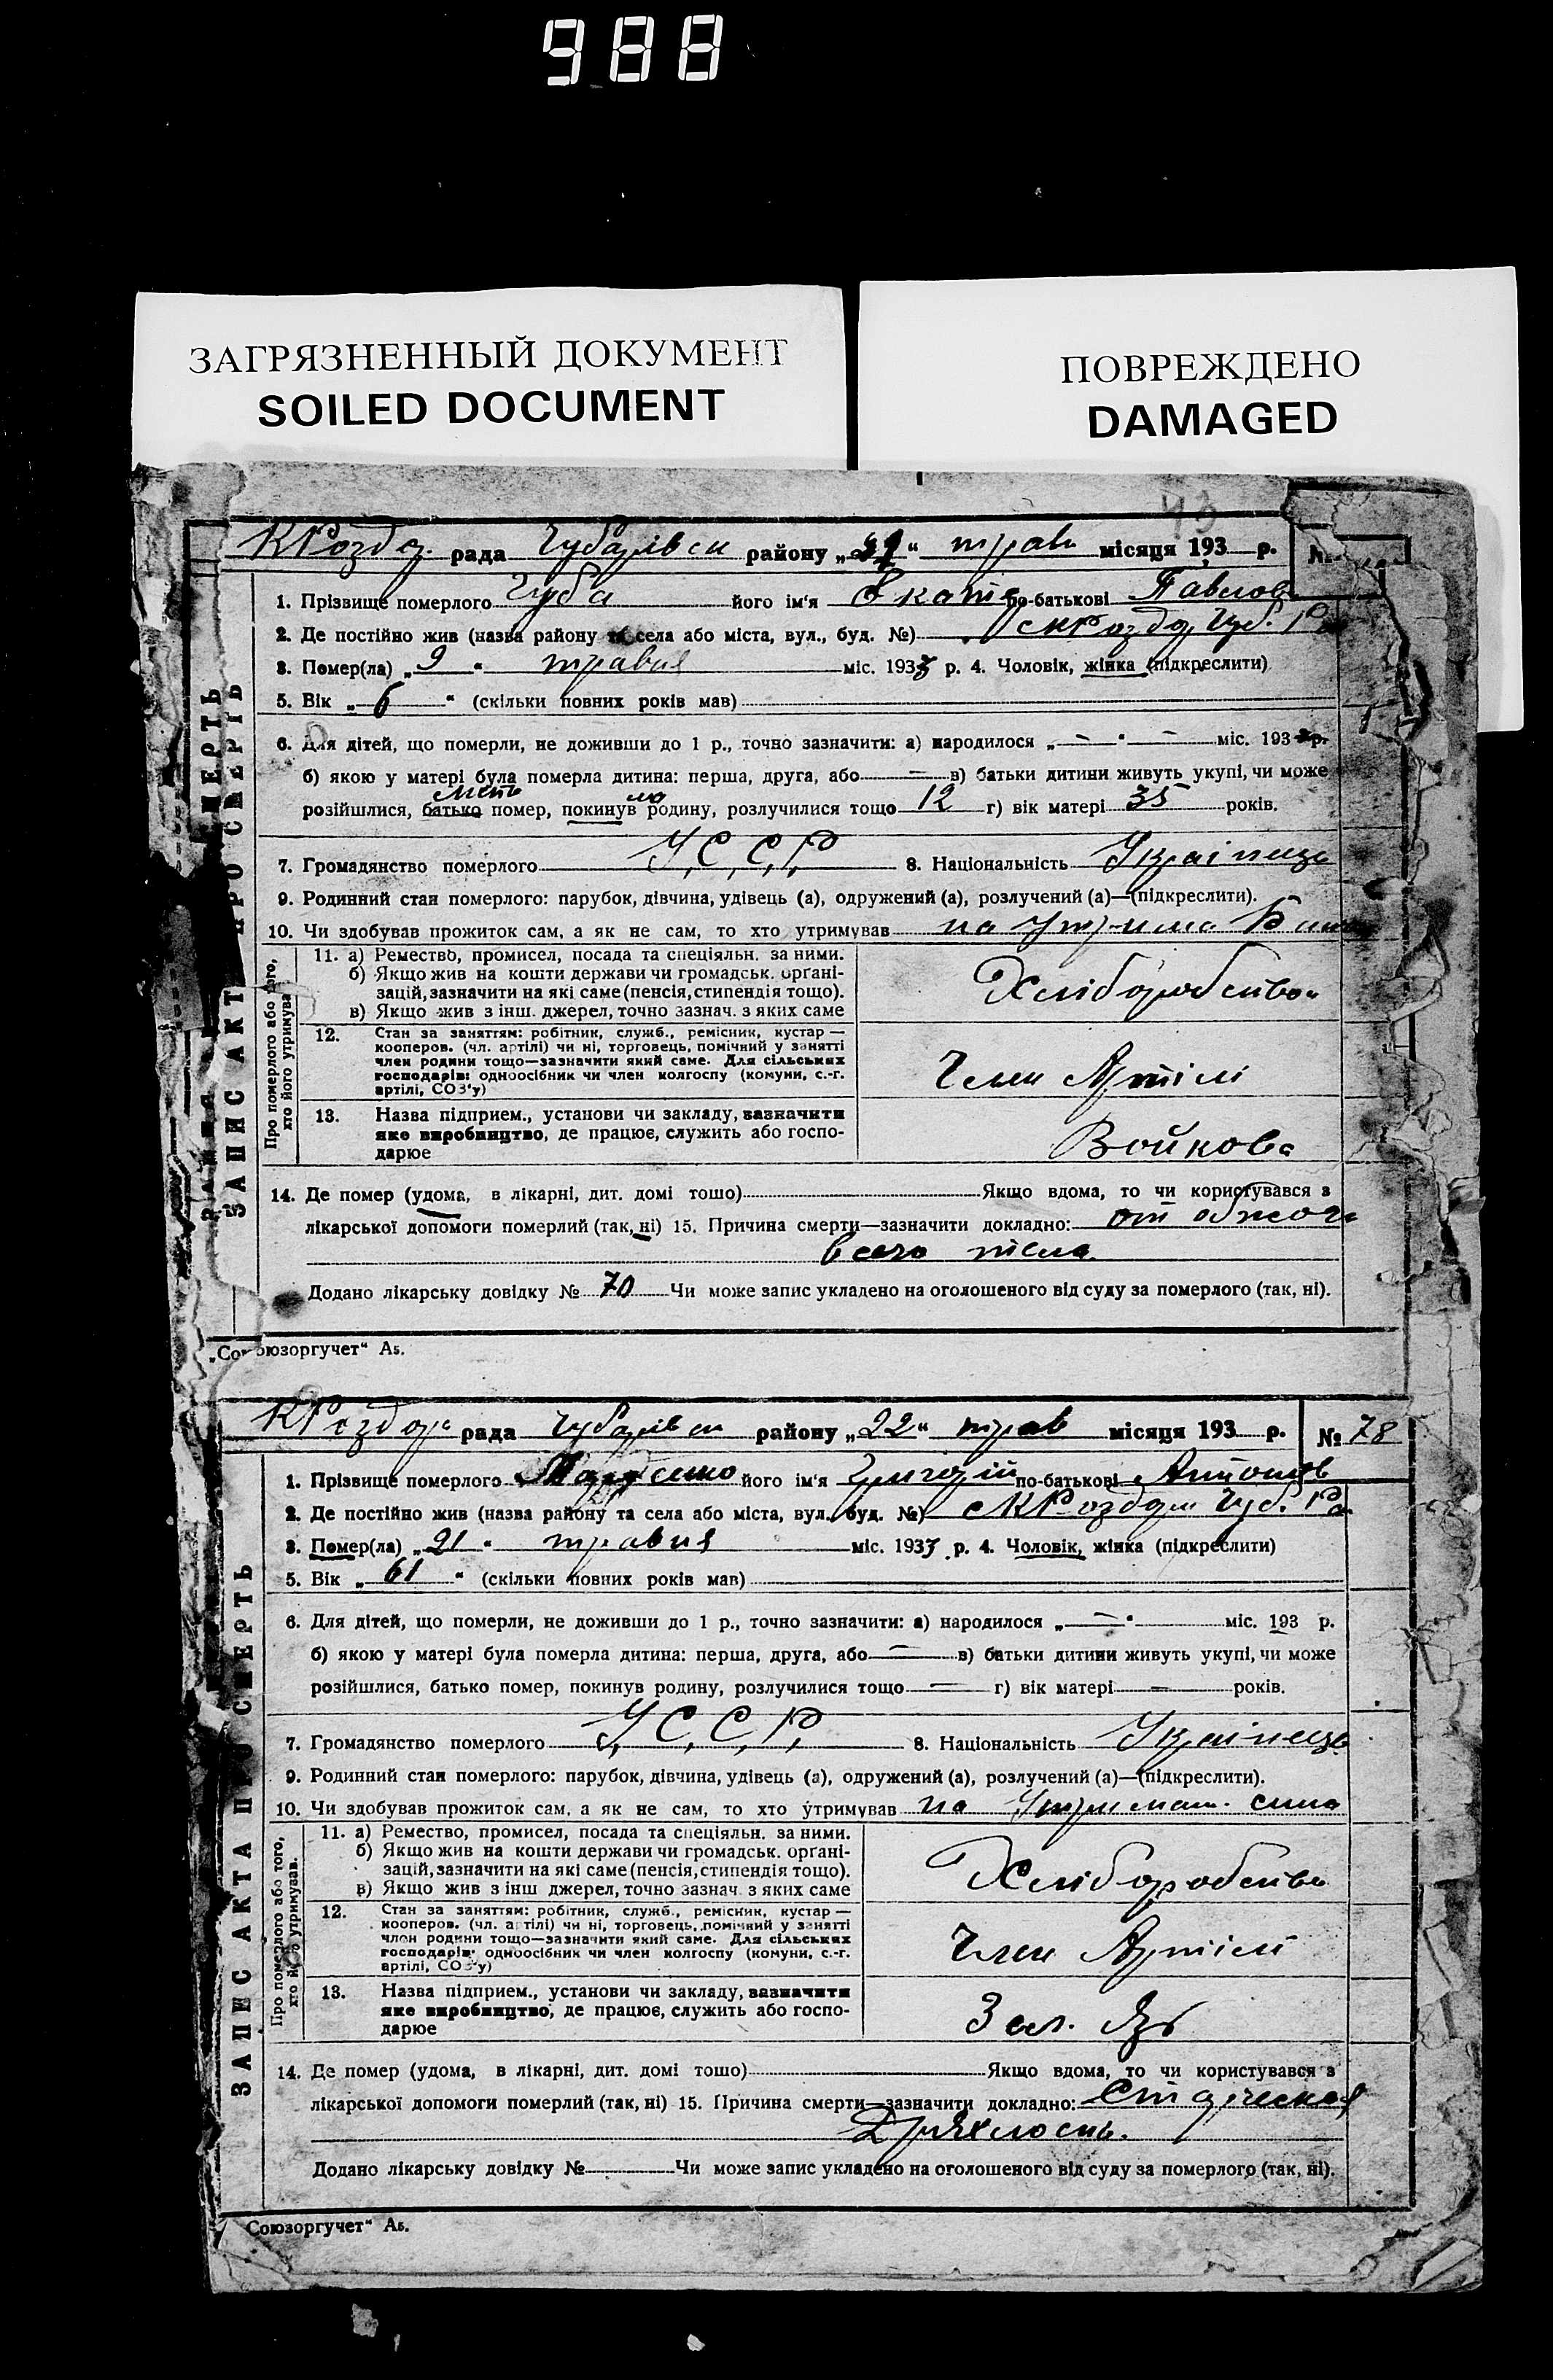 988
ЗАГРЯЗНЕННЫЙ ДОКУМЕНТ
SOILED DOCUMENT
ПОВРЕЖДЕНО
DAMAGED
43
рада Чубарівськ району „ “ трав місяця 193 р. №
1. Прізвище померлого Чуба його ім'я по-батькові Павлов
2. Де постійно жив (назва району та села або міста, вул., буд. №)
3. Помер(ла) „9“ травня міс. 1933 р. 4. Чоловік, жінка (підкреслити)
5. Вік „6“ (скільки повних років мав)
6. Для дітей, що померли, не доживши до 1 р., точно зазначити: а) народилося „—“ — міс. 193 р.
б) якою у матері була померла дитина: перша, друга, або — в) батьки дитини живуть укупі, чи може
мать ла
розійшлися, батько помер, покинув родину, розлучилися тощо 12 г) вік матері 35 років.
7. Громадянство померлого У.С.С.Р. 8. Національність Українець
9. Родинний стан померлого: парубок, дівчина, удівець (а), одружений (а), розлучений (а)—(підкреслити).
10. Чи здобував прожиток сам, а як не сам, то хто утримував на утрима
11. а) Ремество, промисел, посада та спеціяльн. за ними.
б) Якщо жив на кошти держави чи громадськ. орґані-
зацій, зазначити на які саме (пенсія, стипендія тощо).
в) Якщо жив з інш. джерел, точно зазнач. з яких саме
Хліборобство
12. Стан за заняттям: робітник, служб., ремісник, кустар —
кооперов. (чл. артілі) чи ні, торговець, помічний у занятті
член родини тощо—зазначити який саме. Для сільських
господарів: одноосібник чи член колгоспу (комуни, с.-г.
артілі, СОЗ'у)
Член Артілі
13. Назва підприєм., установи чи закладу, зазначити
яке виробництво, де працює, служить або госпо-
дарює
Войкова
14. Де помер (удома, в лікарні, дит. домі тощо) Якщо вдома, то чи користувався з
лікарської допомоги померлий (так, ні) 15. Причина смерти—зазначити докладно: от ожога
всего тела
Додано лікарську довідку № 70 Чи може запис укладено на оголошеного від суду за померлого (так, ні).
ЗАПИС АКТА ПРО СМЕРТЬ
Про померлого або того,
хто його утримував.
„Союзоргучет“ Аб.
рада Чубарівськ району „22“ трав місяця 193 р. № 78
1. Прізвище померлого його ім'я Григорій по-батькові Антонов
2. Де постійно жив (назва району та села або міста, вул., буд. №)
3. Помер(ла) „21“ травня міс. 1933 р. 4. Чоловік, жінка (підкреслити)
5. Вік „61“ (скільки повних років мав)
6. Для дітей, що померли, не доживши до 1 р., точно зазначити: а) народилося „—“ міс. 193 р.
б) якою у матері була померла дитина: перша, друга, або — в) батьки дитини живуть укупі, чи може
розійшлися, батько помер, покинув родину, розлучилися тощо — г) вік матері — років.
7. Громадянство померлого У.С.С.Р. 8. Національність Українець
9. Родинний стан померлого: парубок, дівчина, удівець (а), одружений (а), розлучений (а)—(підкреслити).
10. Чи здобував прожиток сам, а як не сам, то хто утримував на утриман. сина
11. а) Ремество, промисел, посада та спеціяльн. за ними.
б) Якщо жив на кошти держави чи громадськ. орґані-
зацій, зазначити на які саме (пенсія, стипендія тощо).
в) Якщо жив з інш джерел, точно зазнач. з яких саме
Хліборобство
12. Стан за заняттям: робітник, служб., ремісник, кустар —
кооперов. (чл. артілі) чи ні, торговець, помічний у занятті
член родини тощо—зазначити який саме. Для сільських
господарів: одноосібник чи член колгоспу (комуни, с.-г.
артілі, СОЗ'у)
Член Артілі
13. Назва підприєм., установи чи закладу, зазначити
яке виробництво, де працює, служить або госпо-
дарює
14. Де помер (удома, в лікарні, дит. домі тощо) Якщо вдома, то чи користувався з
лікарської допомоги померлий (так, ні) 15. Причина смерти—зазначити докладно: Старческая
Дряхлость.
Додано лікарську довідку № Чи може запис укладено на оголошеного від суду за померлого (так, ні).
ЗАПИС АКТА ПРО СМЕРТЬ
Про померлого або того,
хто його утримував.
Союзоргучет“ Аб.